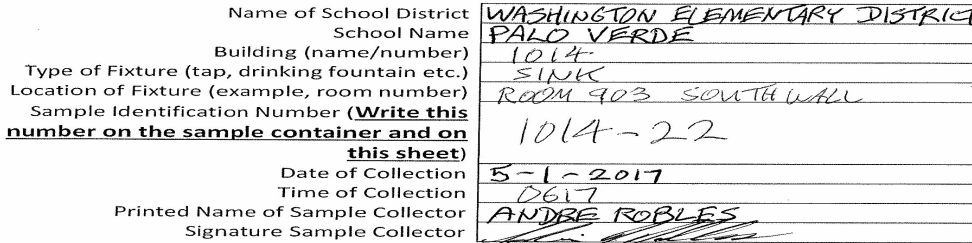 Name of School District WASHINGTON ELEMENTARY DISTRICT
School Name PALO VERDE
Building (name/number) 1014
Type of Fixture (tap, drinking fountain etc.) SINK
Location of Fixture (example, room number) ROOM 903 SOUTH WALL
Sample Identification Number (Write this
number on the sample container and on 1014-22
this sheet)
Date of Collection 5-1-2017
Time of Collection 0617
Printed Name of Sample Collector ANDRE ROBLES
Signature Sample Collector